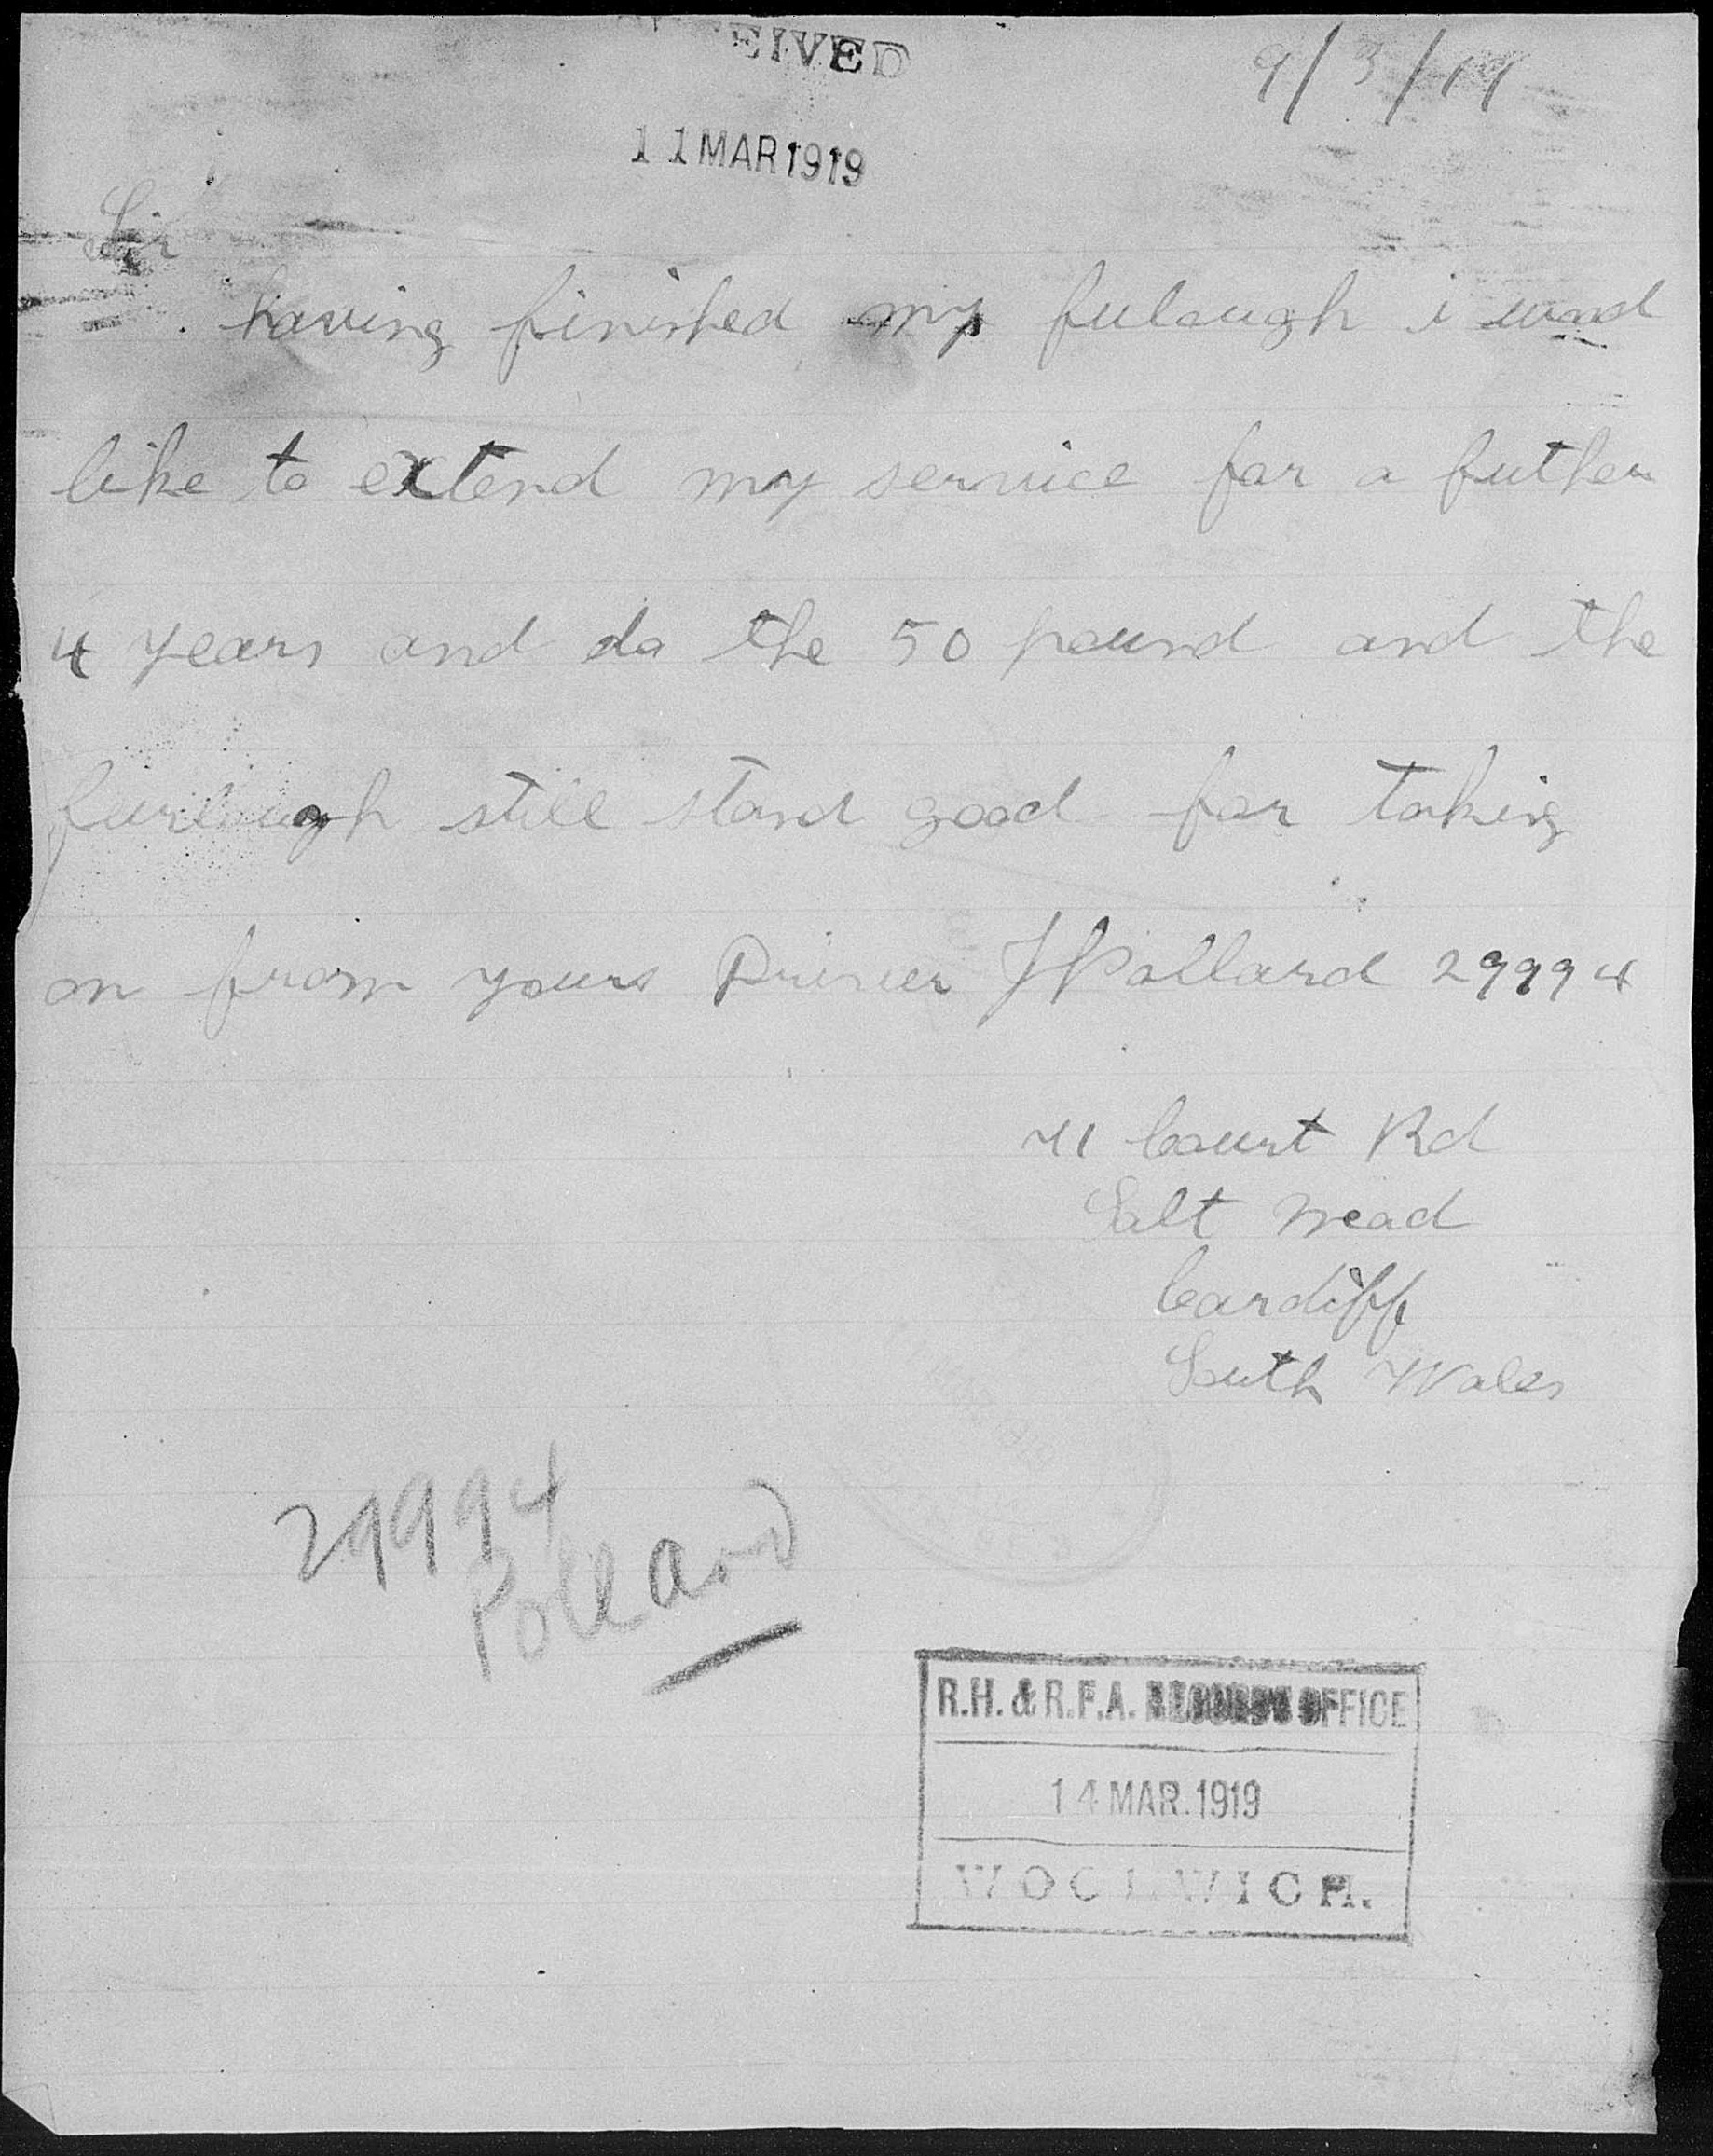 EIVED
9/3/19
11 MAR 1919
Sir
having finished my fulough i
like to extend my service for a futher
4 years and do the 50 pound and the
furlough still stand good for taking
on from yours Driver J Pollard 29994
71 Court Rd
Salt Mead
Cardiff
South Wales
29994
Pollard
R.H. & R.F.A. OFFICE
14 MAR. 1919
WOOLWICH.